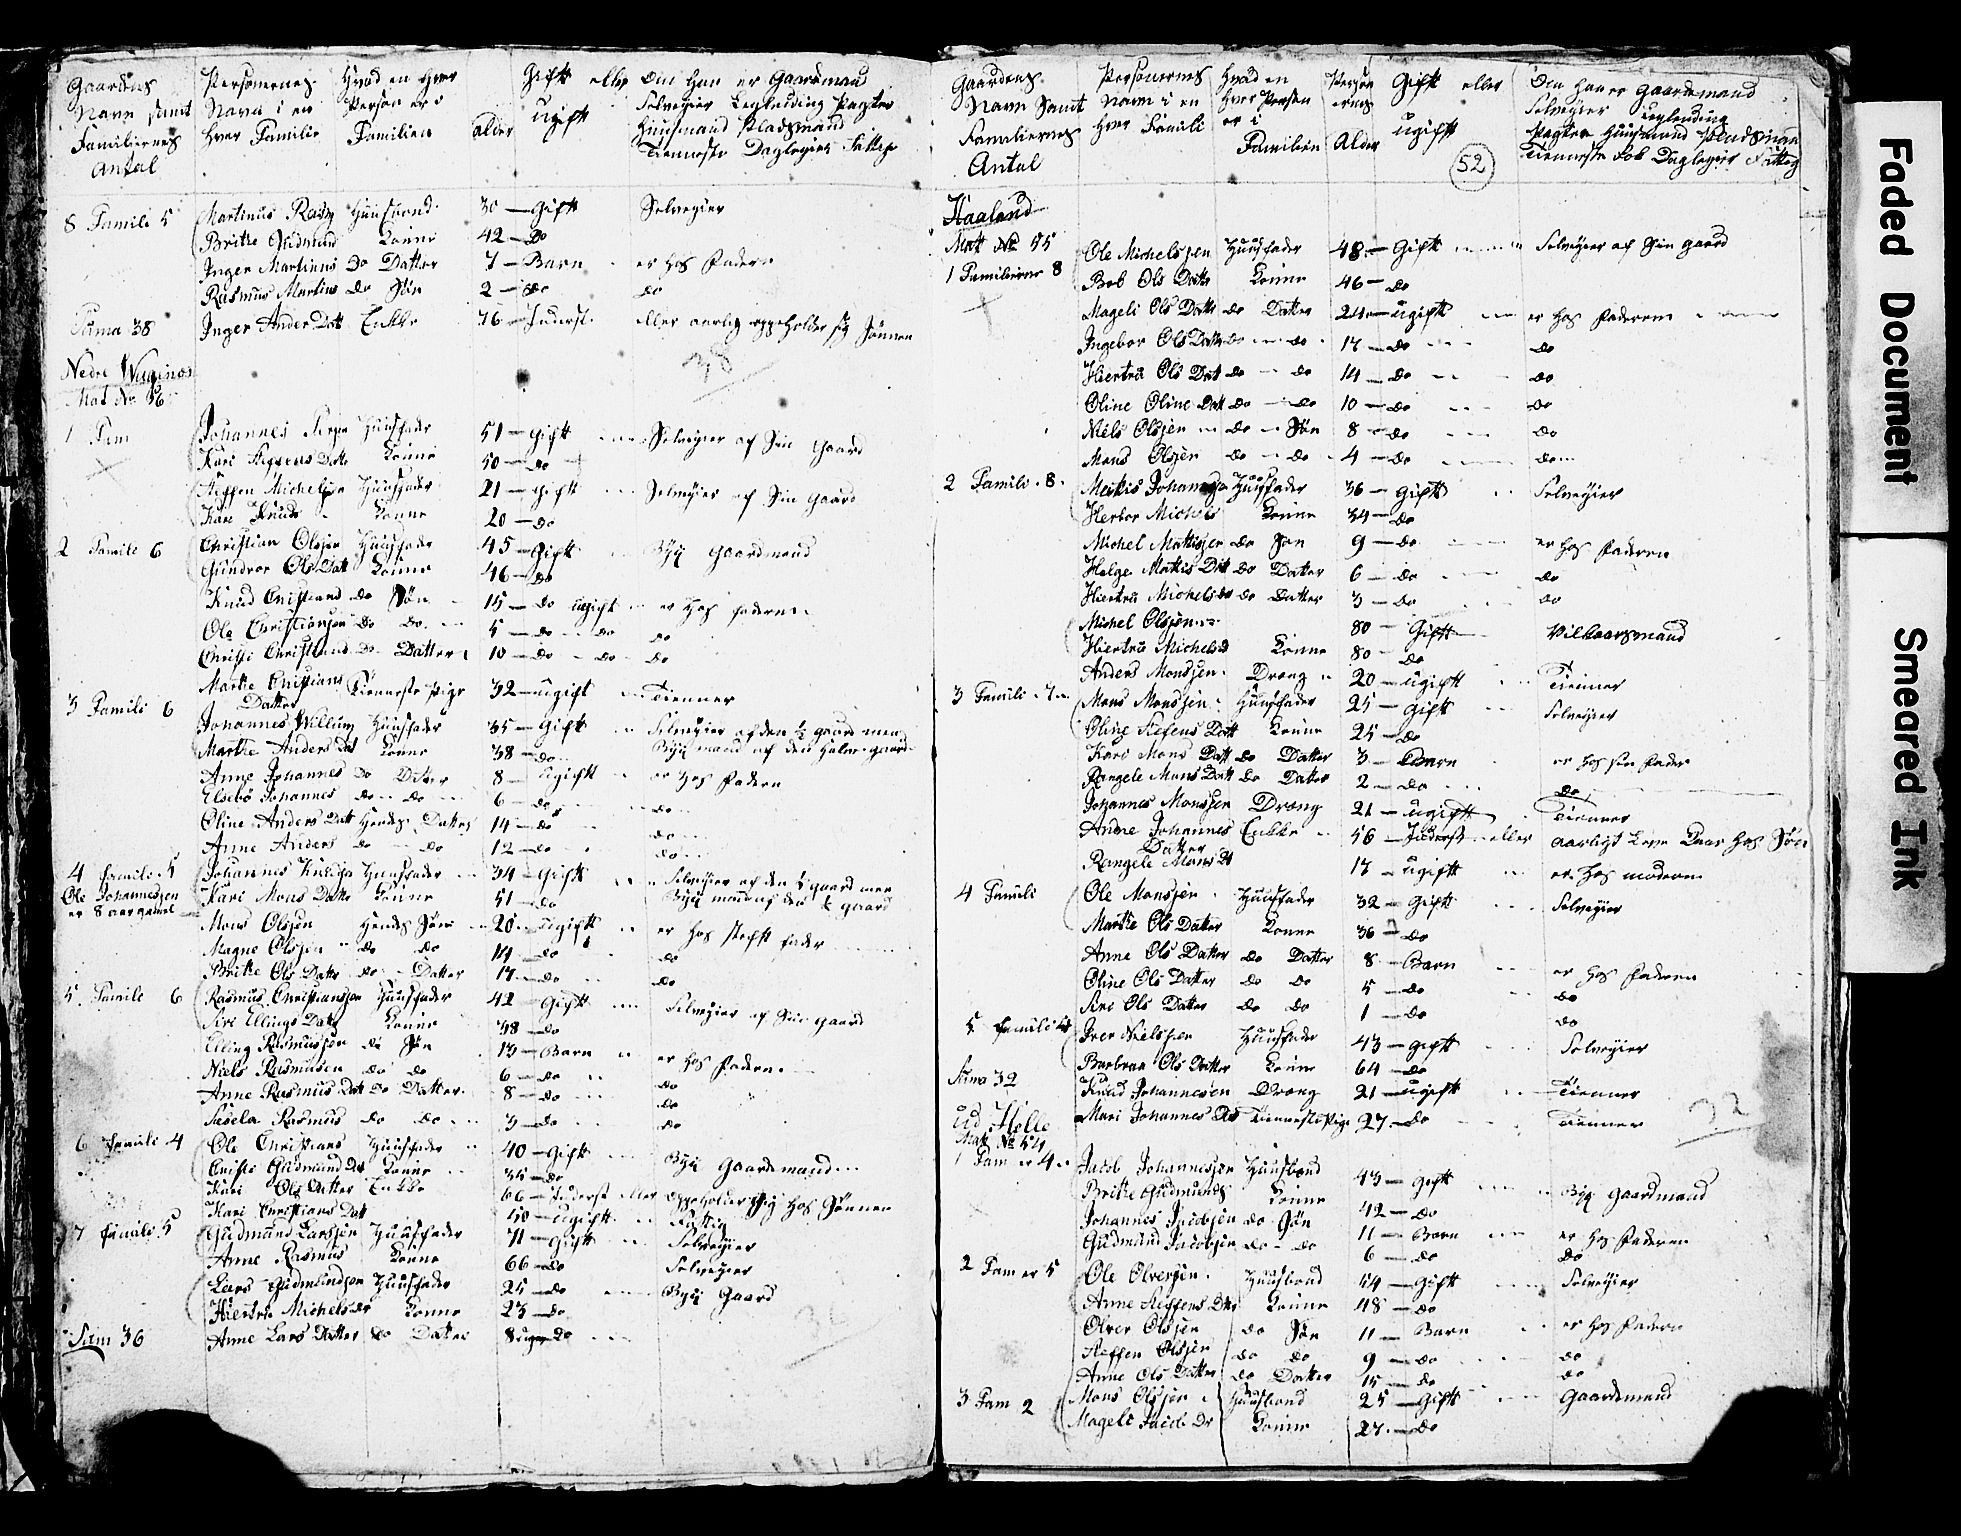 Gaardens Navn samt Familiernes Antal
Personernes Navn i en hver Familie
Hvad en hver Person er i Familien
alder
Gift eller ugift
Om han er Gaardmand Selveyier Leylending Pagter Huusmand Pladsmand Tienneste Dagleyier Fattige
8 Famili 5 Martinus Rasm Huusbond 30 — Gift Selveyier
Brithe Gudmund Konne 42 — Do
Inger Martinus Do Datter 7 — Barn er hos Faderen
Rasmus Martinus do Søn 2 — do do
Suma 38 Inger Ander Datt Enkke 76 — Inderst eller aarlig oppeholder sig Sønnen
38
Nedre Waginæs
Mat No 56
1 Fam Johannes Huusfader 51 — Gift Selveyier af Sin Gaard
Kari Stephens Datt Konne 50 — do
Steffen Michelsen Huusfader 21 — Gift Selveyier af Sin Gaard
Kari Knuds Konne 20 — do
2 Famile 6 Christian Olsjen Huusfader 45 — Gift Byg Gaardmand
Gundror Ols Datt Konne 46 — do
Knud Christians do Søn 15 — do ugift er hos faderen
Ole Christiansjen Do do 5 — do do do
Christi Christians do Datter 10 — do do do
Marthe Christians Datter Tienneste Pige 32 — ugift Tienner
3 Famili 6 Johannes Willums Huusfader 35 — Gift Selveyier af den ½ gaard men
Marthe Anders Dat Konne 38 — do Byg mand af den halve gaard
Anne Johannes Do Datter 8 — ugift er hos Faderen
Elsebe Johannes do do 6 — do do
Oline Anders Datt Hendes Datter 14 — do do
Anne Anders do do 12 — do do
4 famile 5 Johannes Huusfader 34 — Gift Selveyier af den ½ gaard men
Ole Johannesjen er 8 aar gamel Kari Mons Datt Konne 51 — do Byg mand af den ½ gaard
Mons Olsjen Hendes Søn 20 — ugift er hos steff fader
Magne Olsjen do do 14 — do do
Brithe Ols Datt do Datter 17 — do do
5 Famile 6 Rasmus Christiansjen Huusfader 42 — Gift Selveyier af Sin gaard
Siri Ellings Datt Konne 38 — do
Elling Rasmussen do Søn 13 — Barn er hos Faderen
Niels Rasmusen do do 6 — do do
Anne Rasmus Datt Do Datter 8 — do do
Sisela Rasmus do do 3 — do do
6 famile 4 Ole Christians Huusfader 40 — Gift Byg Gaardmand
Christi Gudmund Dt Konne 35 — do
Kari Ols Datter Enkke 66 — Inderst eller oppeholder sig hos Sønnen
Kari Christians Datt 50 — ugift Fattig
7 famile 5 Gudmund Larssen Huusfader 71 — Gift Selveyier
Anne Rasmus Konne 66 — do Selveyier
Lars Gudmundsen Huusfader 25 — do Byg Gaard
Hiertru Michels Dr Konne 23 — do
Sum 36 Anne Lars Datter do Datter 8 uger do
36
Gaardens Navn Samt Familiernes Antal
Personernes Navn i en hver Famili
Hvad en hver Person er i Familien
Personernes Alder
Gift eller ugift
52
Om han er Gaardmand Selveyier Leylending Pagter Huusmand Pladsman Tienneste Folk Dagleyier Fattig
Haaland
Matt No 55 Ole Michelsjen Huusfader 48 — Gift Selveyier af Sin gaard
1 Familierne 8 Bob Ols Datt Konne 46 — do
Mageli Ols Datt do Datter 24 — ugift er hos Faderen
Ingebor Ols Datt do do 17 — do do
Hiertru Ols Dat do do 14 — do do
Oline Oline Datt do do 10 — do do
Niels Olsjen do Søn 8 — do do
Mons Olsjen do do 4 — do do
2 Famili 8 Mathis Johannes Huusfader 36 — Gift Selveyier
Herbor Michels Konne 34 — do
Michel Mathisjen do Søn 9 — do er hos Faderen
Helge Mathis Dtt do Datter 6 — do do
Hiertru Michels do Datter 3 — do do
Michel Olsjen 80 — Gift Vilkaarsmand
Hiertru Michels Konne 80 — do
Anders Monsjen Dreng 20 — ugift Tienner
3 Famili 7 Mons Monsjen Huusfader 25 — Gift Selveyier
Oline Stefens Datt Konne 25 — do
Kari Mons Datt do Datter 3 — Barn er hos sin Fader
Rangele Mons Datt do Datter 2 — do do
Johannes Monssen Dreng 21 — ugift Tienner
Andre Johannes Datter Enkke 56 — Inderst eller aarligt hos Søn
Rangele Mons Dt 17 — ugift er hos moderen
4 Famili Ole Monsjen Huusfader 32 — Gift Selveyier
Marthe Ols Datter Konne 36 — do
Anne Ols Datter do Datter 8 — Barn er hos Faderen
Oline Ols Datter do do 5 — do do
Siri Ols Datter do do 1 — do do
5 famili 4 Iver Nielssen Huusfader 43 — Gift Selveyier
Barbran Ols Datter Konne 64 — do
Suma 32 Knud Johannesen Dreng 21 — ugift Tienner
Mari Johannes Dt Tienneste Pige 27 — do Tienner
32
Ud Helle
Matt No 54
1 Fam er 4 Jacob Johannesjen Huusbond 43 — Gift Byg Gaardmand
Brithe Gudmunds Konne 42 — do
Johannes Jacobsjen do Søn 11 — Barn er hos Faderen
Gudmund Jacobsjen do do 6 — do do
2 Fam er 5 Ole Olversjen Huusbond 54 — Gift Selveyier
Anne Steffens Dtr Konne 48 — do
Olver Olsjen do Søn 11 — Barn er hos Faderen
Steffen Olsjen do do 9 — do do
Anne Ols Datter do Datter 15 — do do
3 Fam 2 Mons Olsjen Huusbond 25 — Gift Gaardmand
Mageli Jacob Dr Konne 27 — do
Faded Document
Smeared Ink